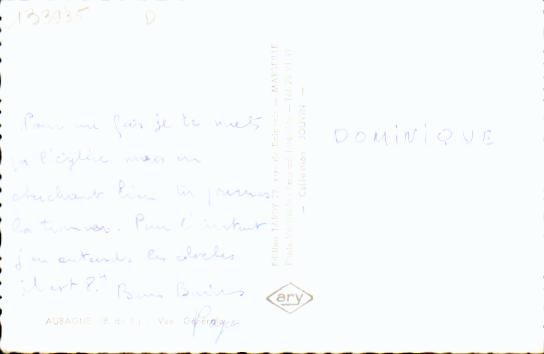 133935 D
Pour une fois je te mets
à l'église mais en
cherchant bien tu pourras
la trouver. Pour l'instant
j'en entends les cloches
il est 8h Bons Baisers
Papa
DOMINIQUE
AUBAGNE (B. du R.) - Vue Générale
MARSEILLE
Collection JOUVIN
ary